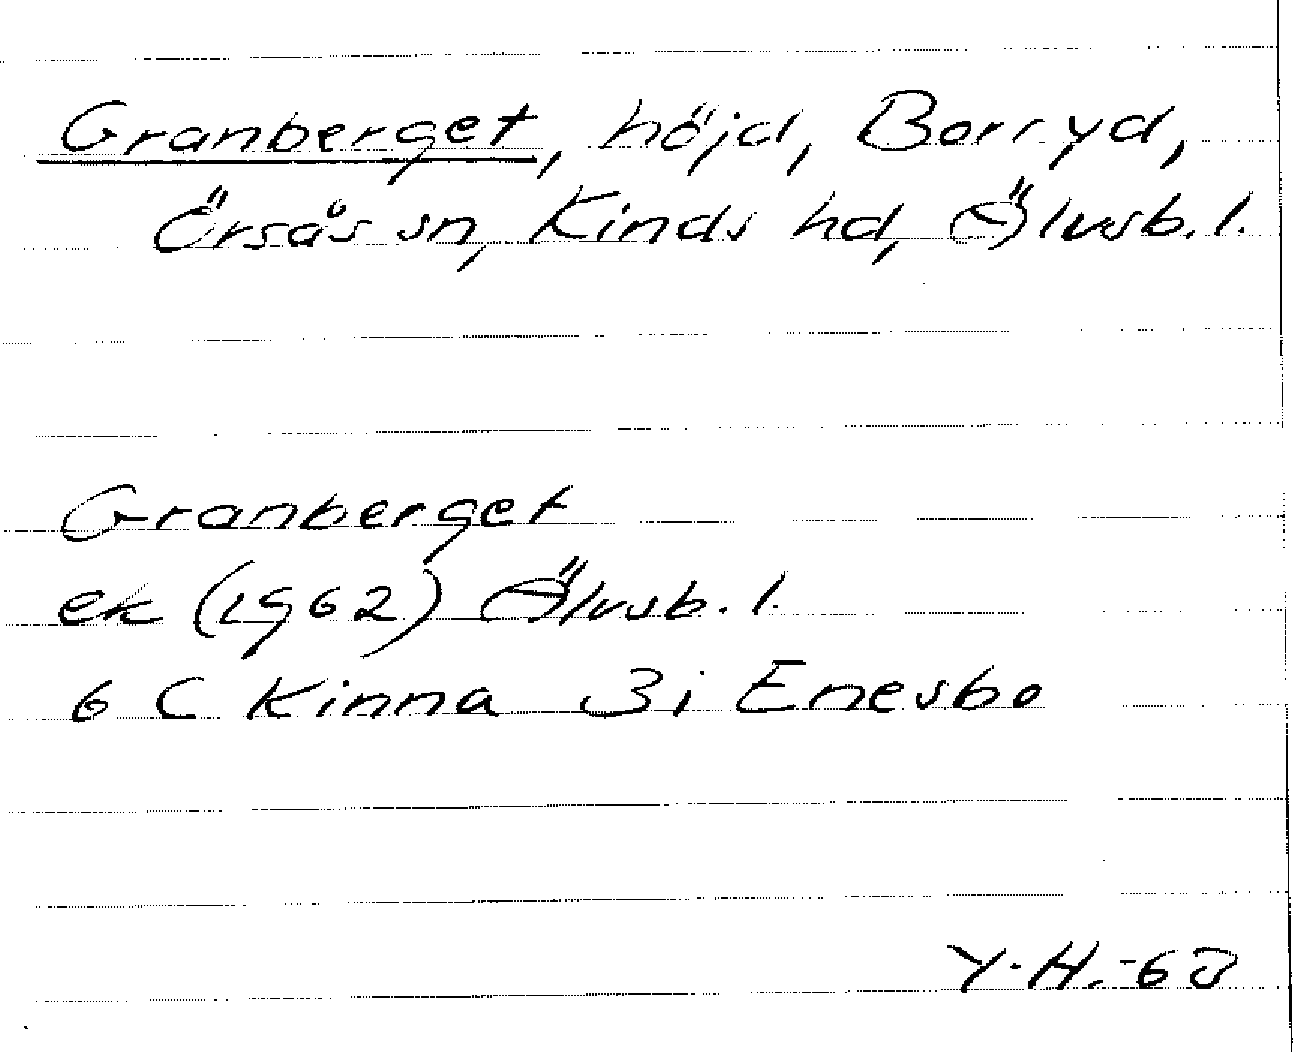 Granberget, höjd, Borryd,
Örsås sn, Kinds hd, Älvsb. l.
Granberget
ek (1962) Älvsb. l.
6 C Kinna 3i Enesbo
Y.H.-63